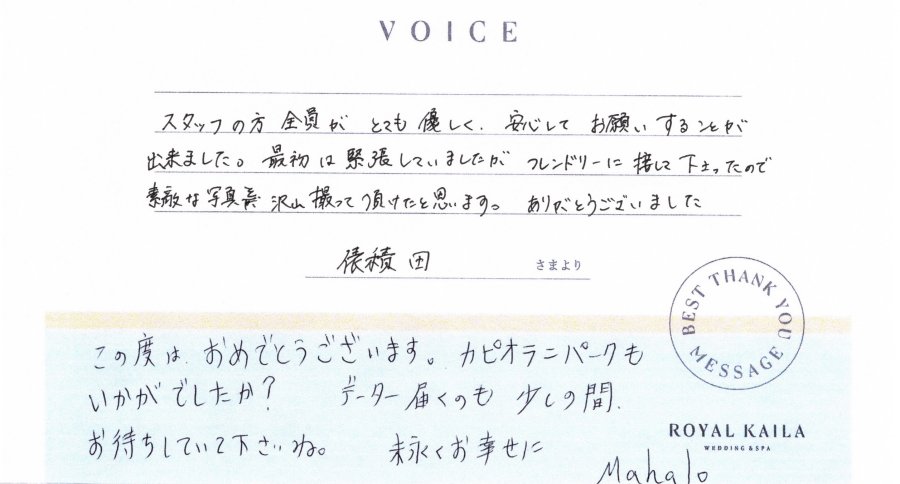 VOICE
スタッフの方 全員が とても 優しく、 安心して お願い することが
出来ました。 最初 は 緊張していましたが フレンドリーに 接して 下さったので
素敵な 写真 沢山 撮って 頂けたと思います。 ありがとうございました
俵積田 さまより
BEST THANK YOU MESSAGE
この度は、おめでとうございます。 カピオラニパークも
いかがでしたか? データー届くのも 少しの間、
お待ちしていて下さいね。 末永くお幸せに
ROYAL KAILA
WEDDING & SPA
Mahalo